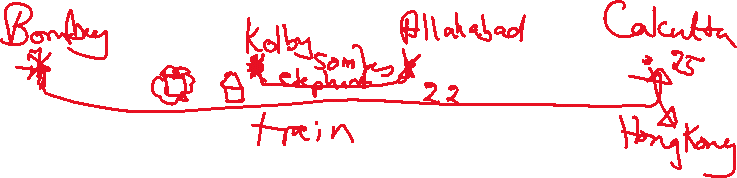 Bombay
Kolby
Allahabad
Calcutta
25
elephant
22
train
HongKong